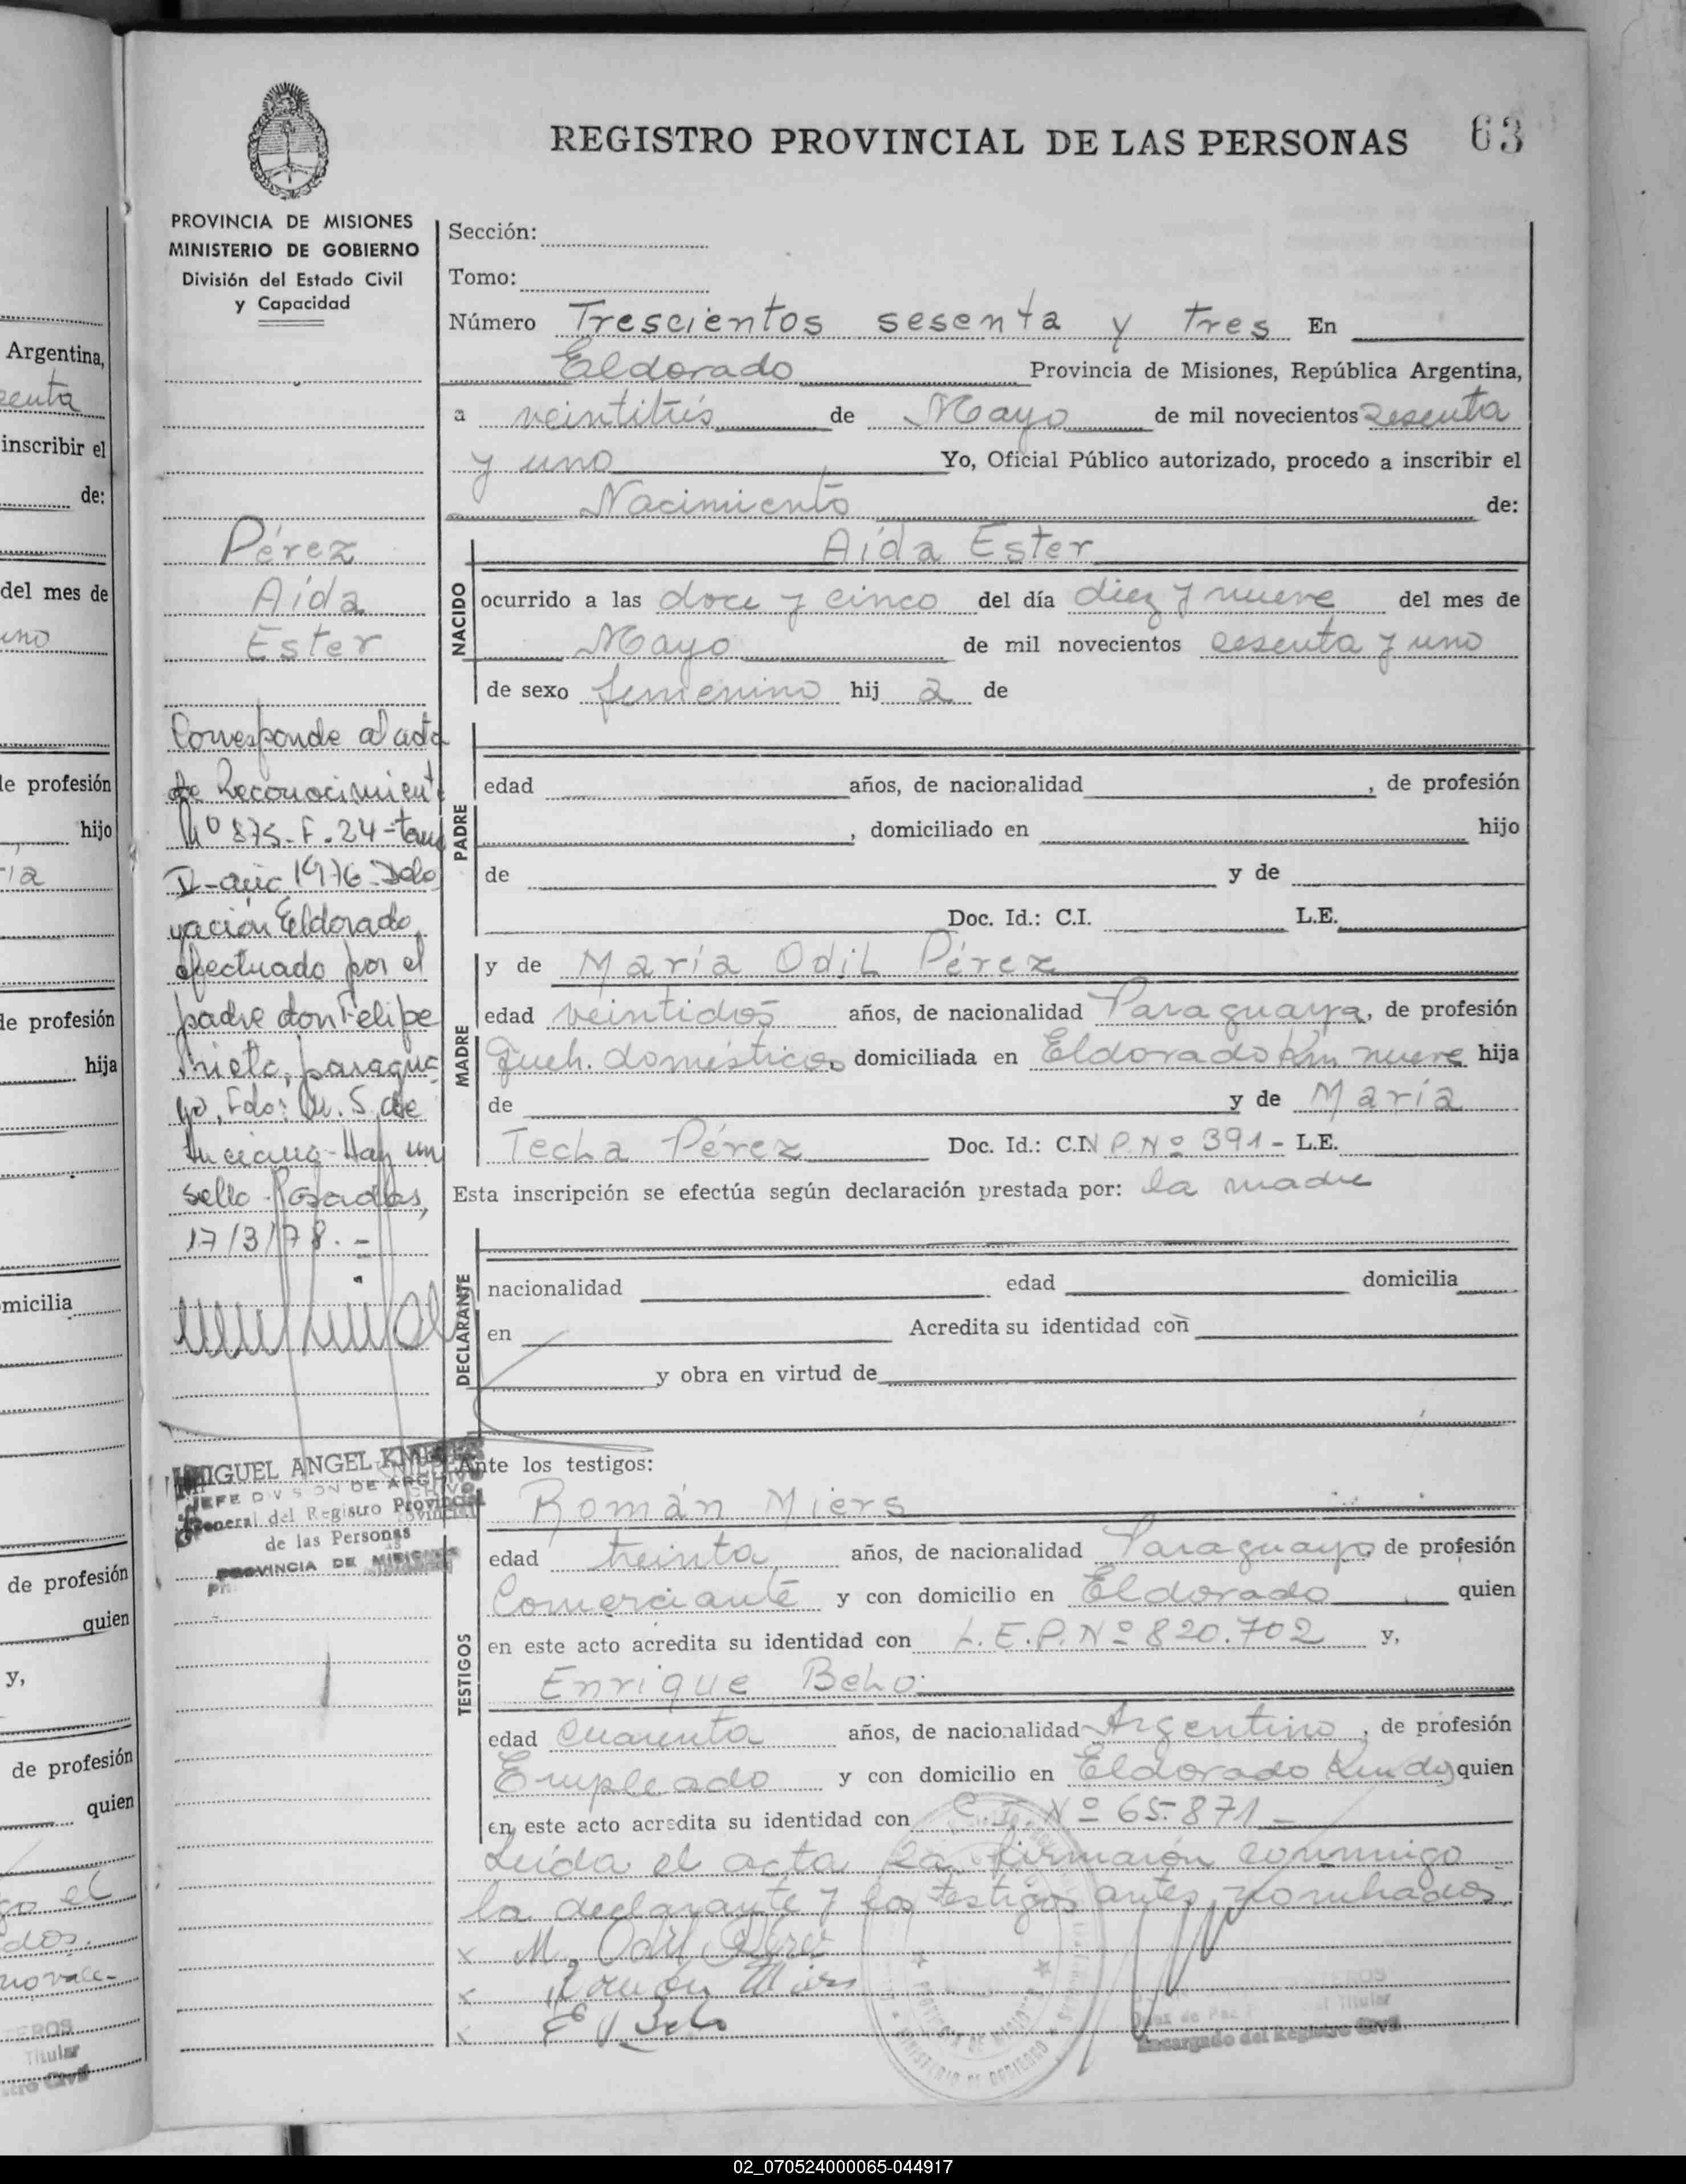 REGISTRO PROVINCIAL DE LAS PERSONAS 63
PROVINCIA DE MISIONES
MINISTERIO DE GOBIERNO
División del Estado Civil
y Capacidad
Pérez
Aída
Ester
Corresponde al acta
de Reconocimient
Nº 875-F.24-tomo
año 1976
Eldorado
efectuado por el
padre don Felipe
Prieto, paragua
yo, Fdo: M. S. de
Hay un
sello Posadas,
17/3/78.-
MIGUEL ANGEL
JEFE DIVISION DE ARCHIVO
General del Registro Provincial
de las Personas
PROVINCIA DE MISIONES
Sección:
Tomo:
Número Trescientos sesenta y tres En
Eldorado Provincia de Misiones, República Argentina,
a veintitrés de Mayo de mil novecientos sesenta
y uno Yo, Oficial Público autorizado, procedo a inscribir el
Nacimiento de:
Aída Ester
NACIDO
ocurrido a las doce y cinco del día diez y nueve del mes de
Mayo de mil novecientos sesenta y uno
de sexo femenino hij a de
PADRE
edad años, de nacionalidad , de profesión
, domiciliado en hijo
de y de
Doc. Id.: C.I. L.E.
MADRE
y de María Odil Pérez
edad veintidós años, de nacionalidad Paraguaya, de profesión
Queh. domésticos domiciliada en Eldorado Km nueve hija
de y de María
Tecla Pérez Doc. Id.: C.I. N P. Nº 391- L.E.
Esta inscripción se efectúa según declaración prestada por: la madre
DECLARANTE
nacionalidad edad domicilia
en Acredita su identidad con
y obra en virtud de
Ante los testigos:
TESTIGOS
Román Miers
edad treinta años, de nacionalidad Paraguayo de profesión
Comerciante y con domicilio en Eldorado quien
en este acto acredita su identidad con L.E.P. Nº 820.702 y,
Enrique Belo
edad cuarenta años, de nacionalidad Argentino, de profesión
Empleado y con domicilio en Eldorado Km dos quien
en este acto acredita su identidad con C.I. Nº 65.871
Leída el acta la firmaron conmigo
la declarante y los testigos antes nombrados.
x M. Odil Pérez
x Román Miers
x E Belo
Encargado del Registro Civil
Argentina,
inscribir el
de:
del mes de
uno
de profesión
hijo
de profesión
hija
micilia
de profesión
quien
y,
de profesión
quien
Titular
02_070524000065-044917